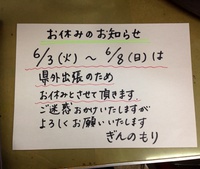 お休みのお知らせ
6/3(火)～6/8(日)は
県外出張のため
お休みとさせて頂きます。
ご迷惑おかけいたしますが
よろしくお願いいたします
ぎんのもり